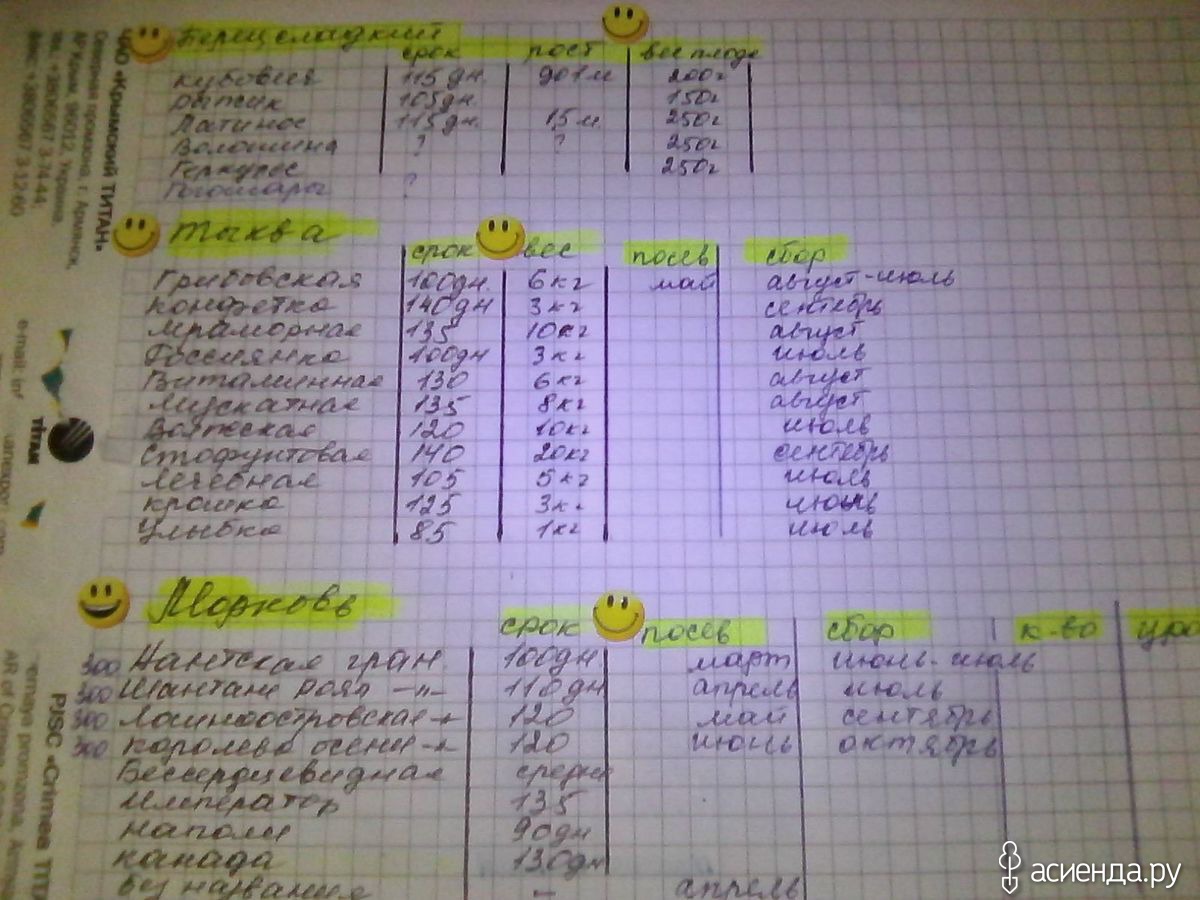 Перец сладкий
срок рост вес плода
Кубовия 115дн. 90 1м 200г
рыжик 105дн. 150г
Латинос 115дн. 15 м 250г
Волошина ? ? 250г
Геркулес 250г
Гогошары ?
Тыква
срок вес посев сбор
Грибовская 100дн. 6кг май август-июль
конфетка 140дн 3кг сентябрь
мраморная 135 10кг август
Россиянка 100дн 3кг июль
Витаминная 130 6кг август
мускатная 135 8кг август
Волжская 120 10кг июль
Стофунтовая 140 20кг сентябрь
лечебная 105 5кг июль
крошка 125 3кг
улыбка 85 1кг июль
Морковь
срок посев сбор к-во
300 Нантская гран. 100дн март июнь-июль
300 Шантане роял -"- 110дн апрель июль
300 Лосиноостровская 120 май сентябрь
300 королева осени 120 июнь октябрь
Бессердцевидная средн
император 135
наполи 90дн
канада 130дн
без названия – апрель
ЧАО «Кримський ТИТАН»
Северная промзона, г. Армянск,
АР Крым, 96012, Украина.
тел. +38(06567) 3-74-44
факс: +38(06567) 3-12-60
e-mail: in
TITAN
PJSC «Crimea TITA
AR of Crimea,
асиенда.ру